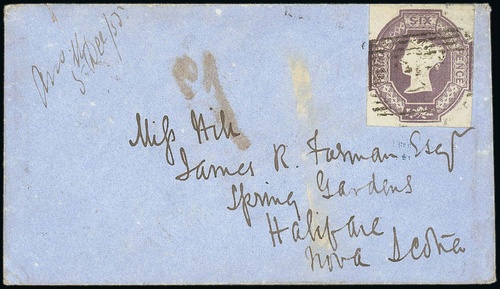 SIX
PENCE
Miss Hill
James R. Forman Esqr
Spring Gardens
Halifax
Nova Scotia